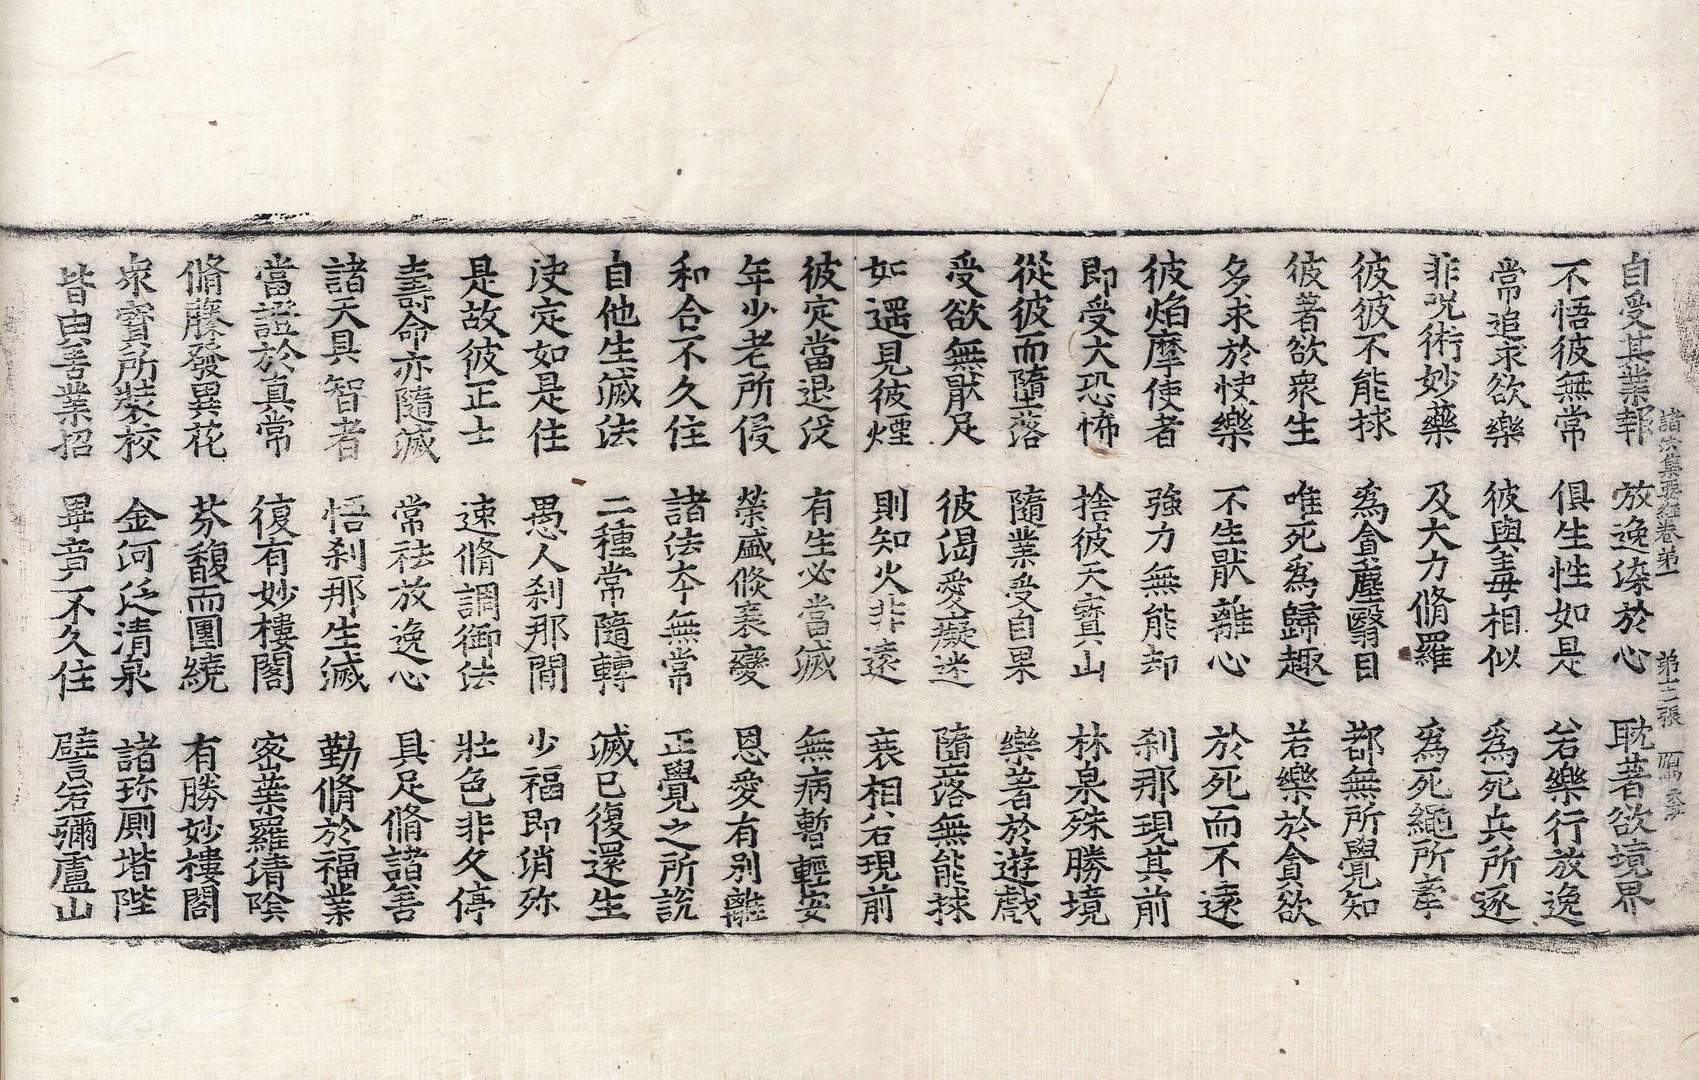 諸法集要經卷第一　第十二張
自受其業報　放逸染於心　耽著欲境界
不悟彼無常　俱生性如是　若樂行放逸
常追求欲樂　彼與毒相似　爲死兵所逐
非呪術妙藥　及大力脩羅　爲死繩所牽
彼彼不能救　爲貪塵翳目　都無所覺知
彼著欲衆生　唯死爲歸趣　若樂於貪欲
多求於快樂　不生猒離心　於死而不遠
彼焰摩使者　強力無能却　刹那現其前
即受大恐怖　捨彼天寶山　林泉殊勝境
從彼而墮落　隨業受自果　樂著於遊戲
受欲無猒足　彼渴愛癡迷　墮落無能救
如遥見彼煙　則知火非遠　衰相若現前
彼定當退沒　有生必當滅　無病暫輕安
年少老所侵　榮盛倏衰變　恩愛有別離
和合不久住　諸法本無常　正覺之所說
自他生滅法　二種常隨轉　滅已復還生
決定如是住　愚人刹那間　少福即消殄
是故彼正士　速脩調御法　壯色非久停
壽命亦隨滅　常祛放逸心　具足脩諸善
諸天具智者　悟刹那生滅　勤脩於福業
當證於真常　復有妙樓閣　密葉羅清陰
脩藤發異花　芬馥而圍繞　有勝妙樓閣
衆寶所裝校　金河泛清泉　諸珎廁堦陛
皆由善業招　畢竟不久住　譬若彌盧山